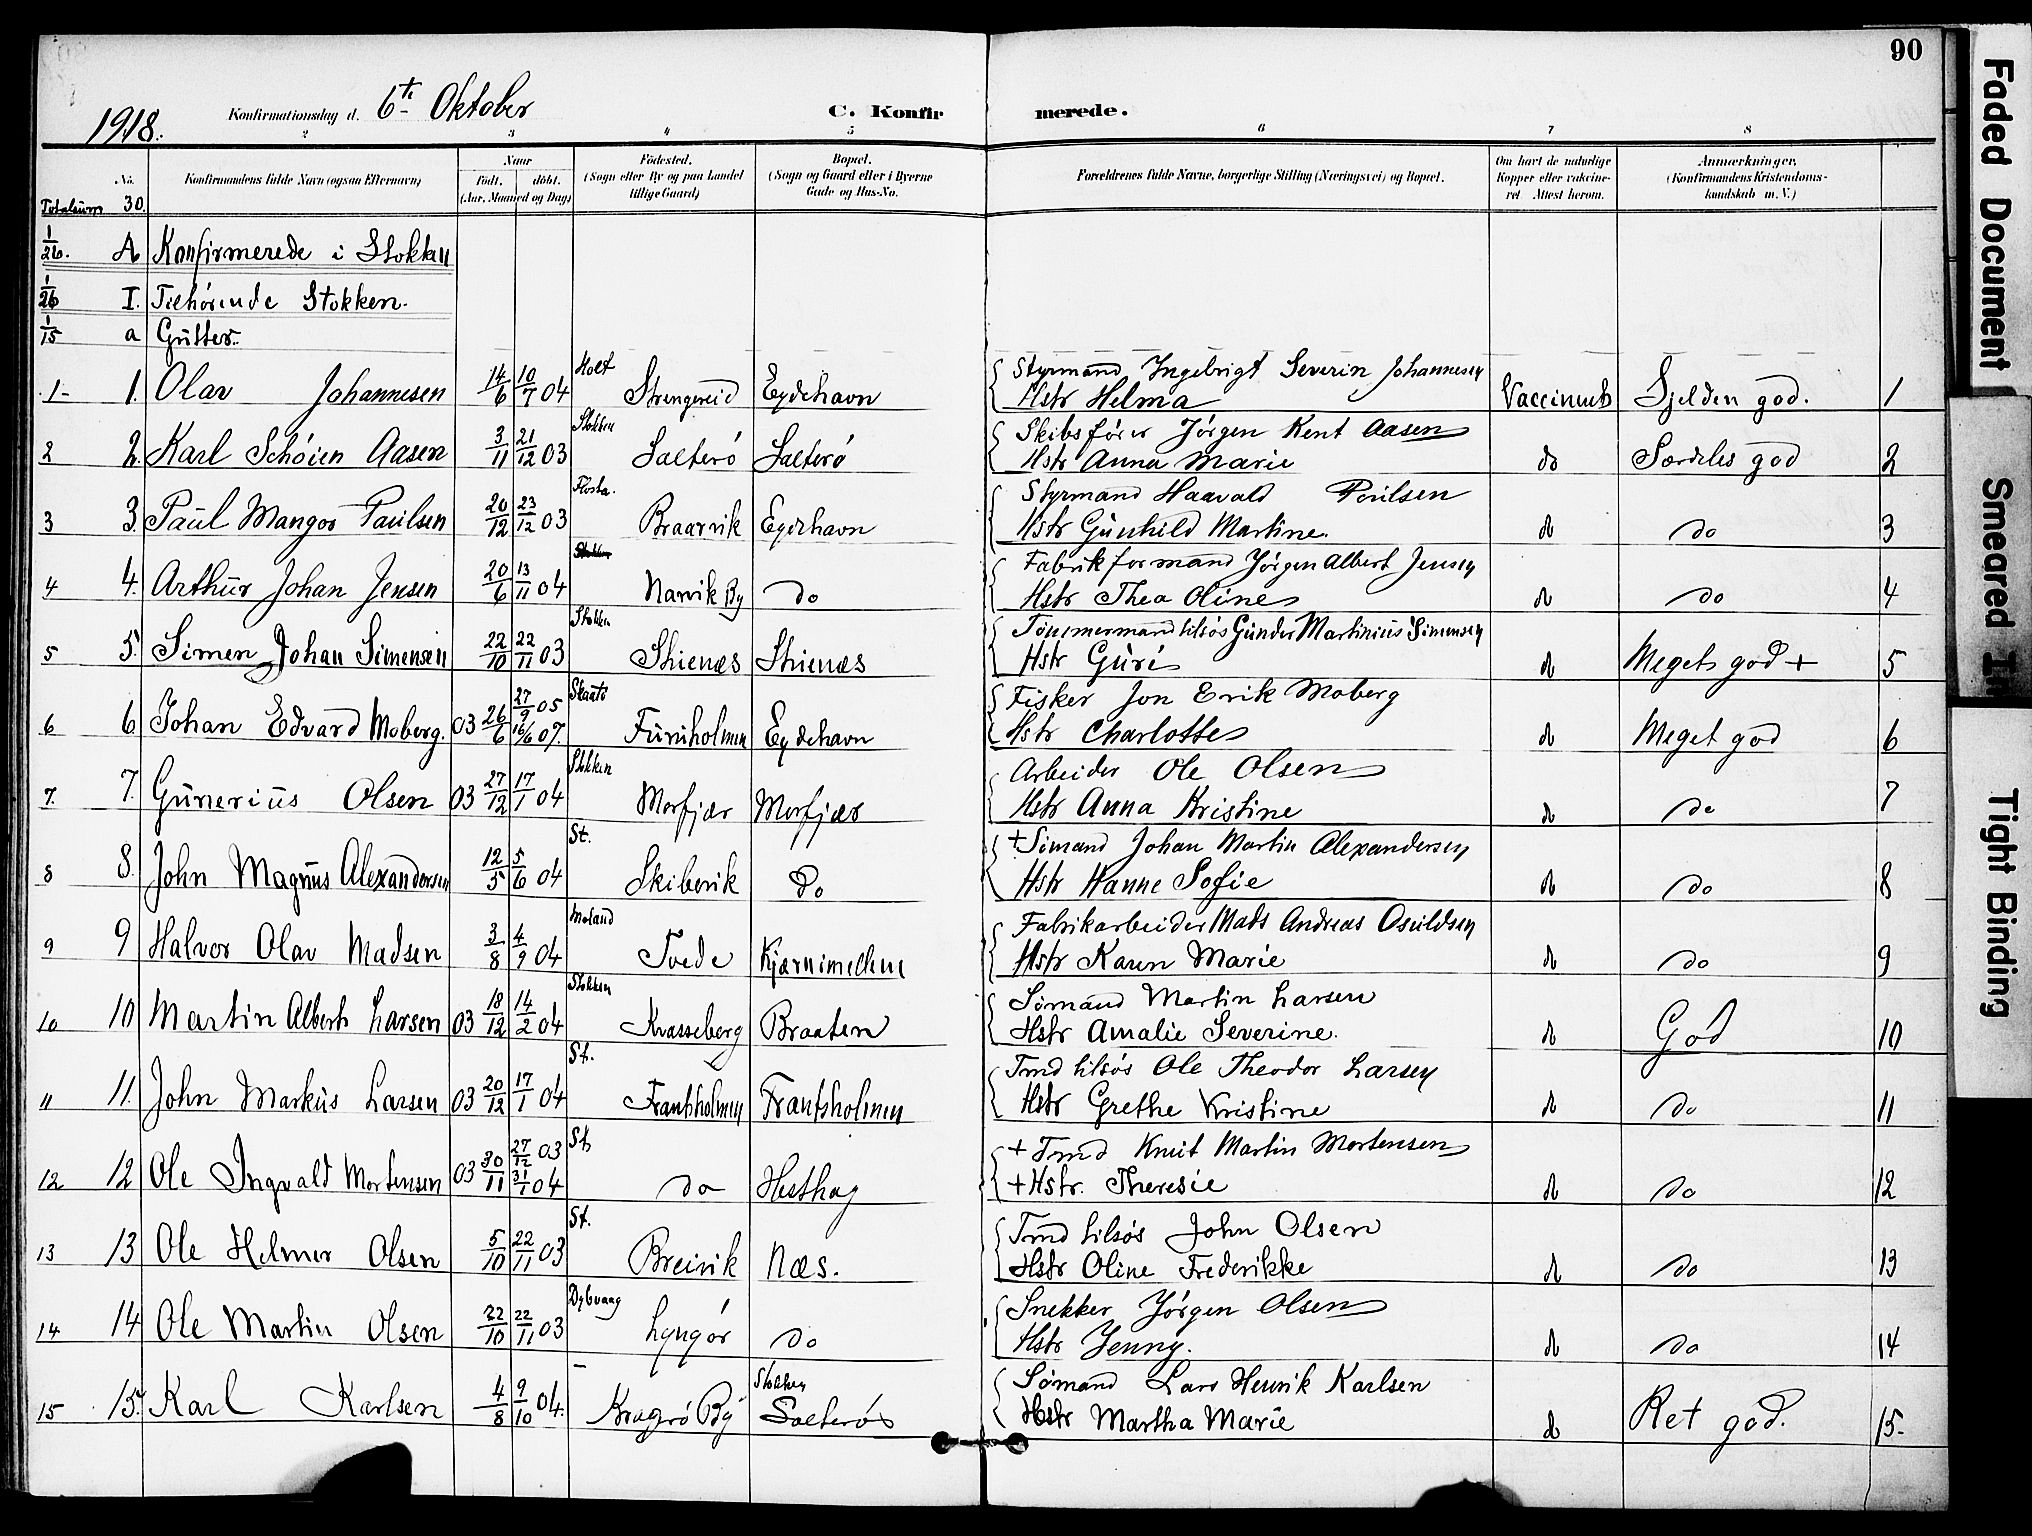 90
1918.
Konfirmationsdag d. 6te Oktober
C. Konfirmerede.
2 3 4 5 6 7 8
No.
Konfirmandens fulde Navn (ogsaa Efternavn)
Naar
Födt. döbt.
(Aar, Maaned og Dag)
Födested.
(Sogn eller By og paa Landet
tillige Gaard)
Bopæl.
(Sogn og Gaard eller i Byerne
Gade og Hus-No.
Forældrenes fulde Navne, borgerlige Stilling (Næringsvei) og Bopæl.
Om havt de naturlige
Kopper eller vakcine-
ret Attest herom.
Anmærkninger.
(Konfirmandens Kristendoms-
kundskab m. V.)
Totalsum 30.
1/26. A Konfirmerede i Stokken
1/26 I. Tilhörende Stokken.
1/15 a Gutter.
1 1. Olav Johannesen 14/6 10/7 04 Holt Strengereid Eydehavn Styrmand Ingebrigt Severin Johannesen
Hstr Helma Vaccineret Sjelden god. 1
2 2. Karl Schöien Aasen 3/11 21/12 03 Stokken Salterö Salterö Skibsförer Jörgen Kent Aasen
Hstr Anna Marie do Særdeles god 2
3 3. Paul Mangor Paulsen 20/12 23/12 03 Flosta. Braarvik Eydehavn Styrmand Haavald Poulsen
Hstr Gunhild Martine. d do 3
4 4. Arthur Johan Jensen 20/6 13/11 04 Narvik By do Fabrikformand Jörgen Albert Jensen
Hstr Thea Oline d do 4
5 5. Simen Johan Simensen 22/10 22/11 03 Stokken Skienæs Skienæs Tömmermand tilsös Gunder Martinius Simensen
Hstr Guri d Meget god + 5
6 6. Johan Edvard Moberg. 03 26/6 27/9 05 16/6 07. Skaatö Furuholmen Eydehavn Fisker Jon Erik Moberg
Hstr Charlotte d Meget god 6
7. 7. Gunerius Olsen 03 27/12 17/1 04 Stokken Morfjær Morfjær Arbeider Ole Olsen
Hstr Anna Kristine d do 7
8 8. John Magnus Alexandersen 12/5 5/6 04 St. Skibevik Do + Sömand Johan Martin Alexandersen
Hstr Hanne Sofie d do 8
9 9 Halvor Olav Madsen 3/8 4/9 04 Moland Tvede Kjærnimellene Fabrikarbeider Mads Andreas Osuldsen
Hstr Karen Marie d do 9
10 10 Martin Albert Larsen 03 18/12 14/2 04 Stokken Kvasseberg Braaten Sömand Martin Larsen
Hstr Amalie Severine. d God 10
11 11. John Markus Larsen 03 20/12 17/1 04 St. Frantsholmen Frantsholmen Tmd tilsös Ole Theodor Larsen
Hstr Grethe Kristine d do 11
12 12 Ole Ingvald Mortensen 03 30/11 27/12 03 31/1 04 St do Hesthag + Tmd Knut Martin Mortensen
+ Hstr. Theresie d do 12
13 13 Ole Helmer Olsen 5/10 22/11 03 St. Breivik Næs. Tmd tilsös John Olsen
Hstr Oline Frederikke d do 13
14 14 Ole Martin Olsen 22/10 22/11 03 Dybvaag Lyngör do Snekker Jörgen Olsen
Hstr Jenny. d do 14
15 15. Karl Karlsen 4/8 9/10 04. – Kragerö By Stokken Salterö Sömand Lars Henrik Karlsen
Hstr Martha Marie d Ret god. 15
Faded Document
Smeared In
Tight Binding